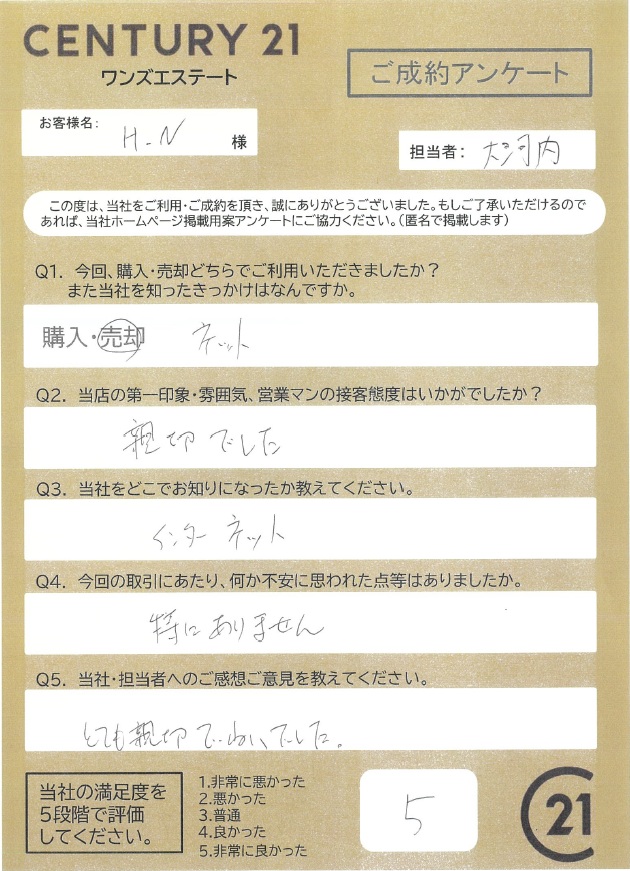 CENTURY 21
ワンズエステート
ご成約アンケート
お客様名:
H.N 様
担当者: 大河内
この度は、当社をご利用・ご成約を頂き、誠にありがとうございました。もしご了承いただけるので
あれば、当社ホームページ掲載用案アンケートにご協力ください。(匿名で掲載します)
Q1. 今回、購入・売却どちらでご利用いただきましたか?
また当社を知ったきっかけはなんですか。
購入・売却 ネット
Q2. 当店の第一印象・雰囲気、営業マンの接客態度はいかがでしたか?
親切でした
Q3. 当社をどこでお知りになったか教えてください。
インターネット
Q4. 今回の取引にあたり、何か不安に思われた点等はありましたか。
特にありません
Q5. 当社・担当者へのご感想ご意見を教えてください。
とても親切で でした。
当社の満足度を
5段階で評価
してください。
1.非常に悪かった
2.悪かった
3.普通
4.良かった
5.非常に良かった
5
21